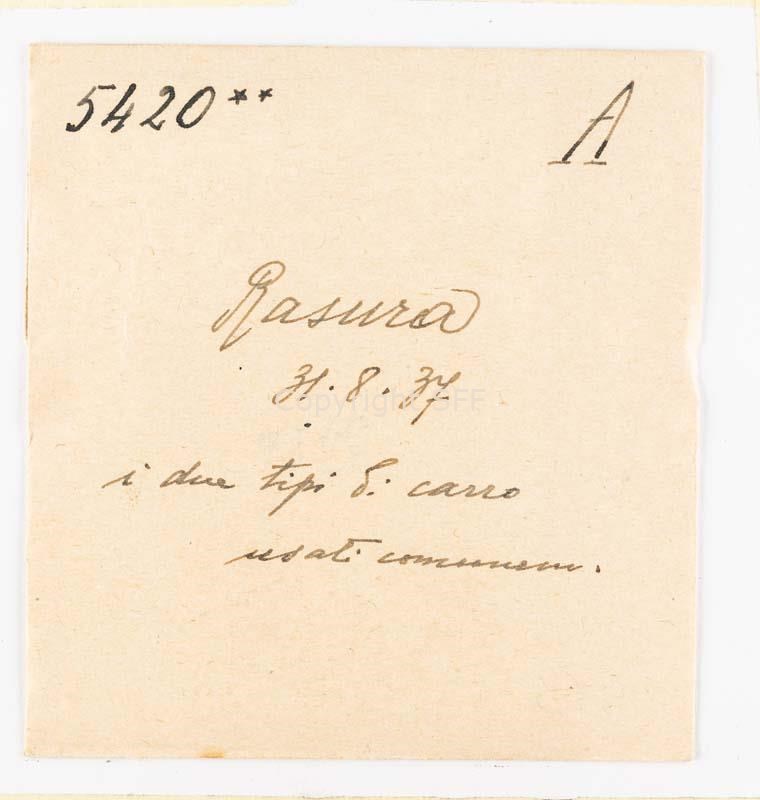 5420** A
Rasura
31.8.37
Copyright SFE
i due tipi di carro
usati comunem.